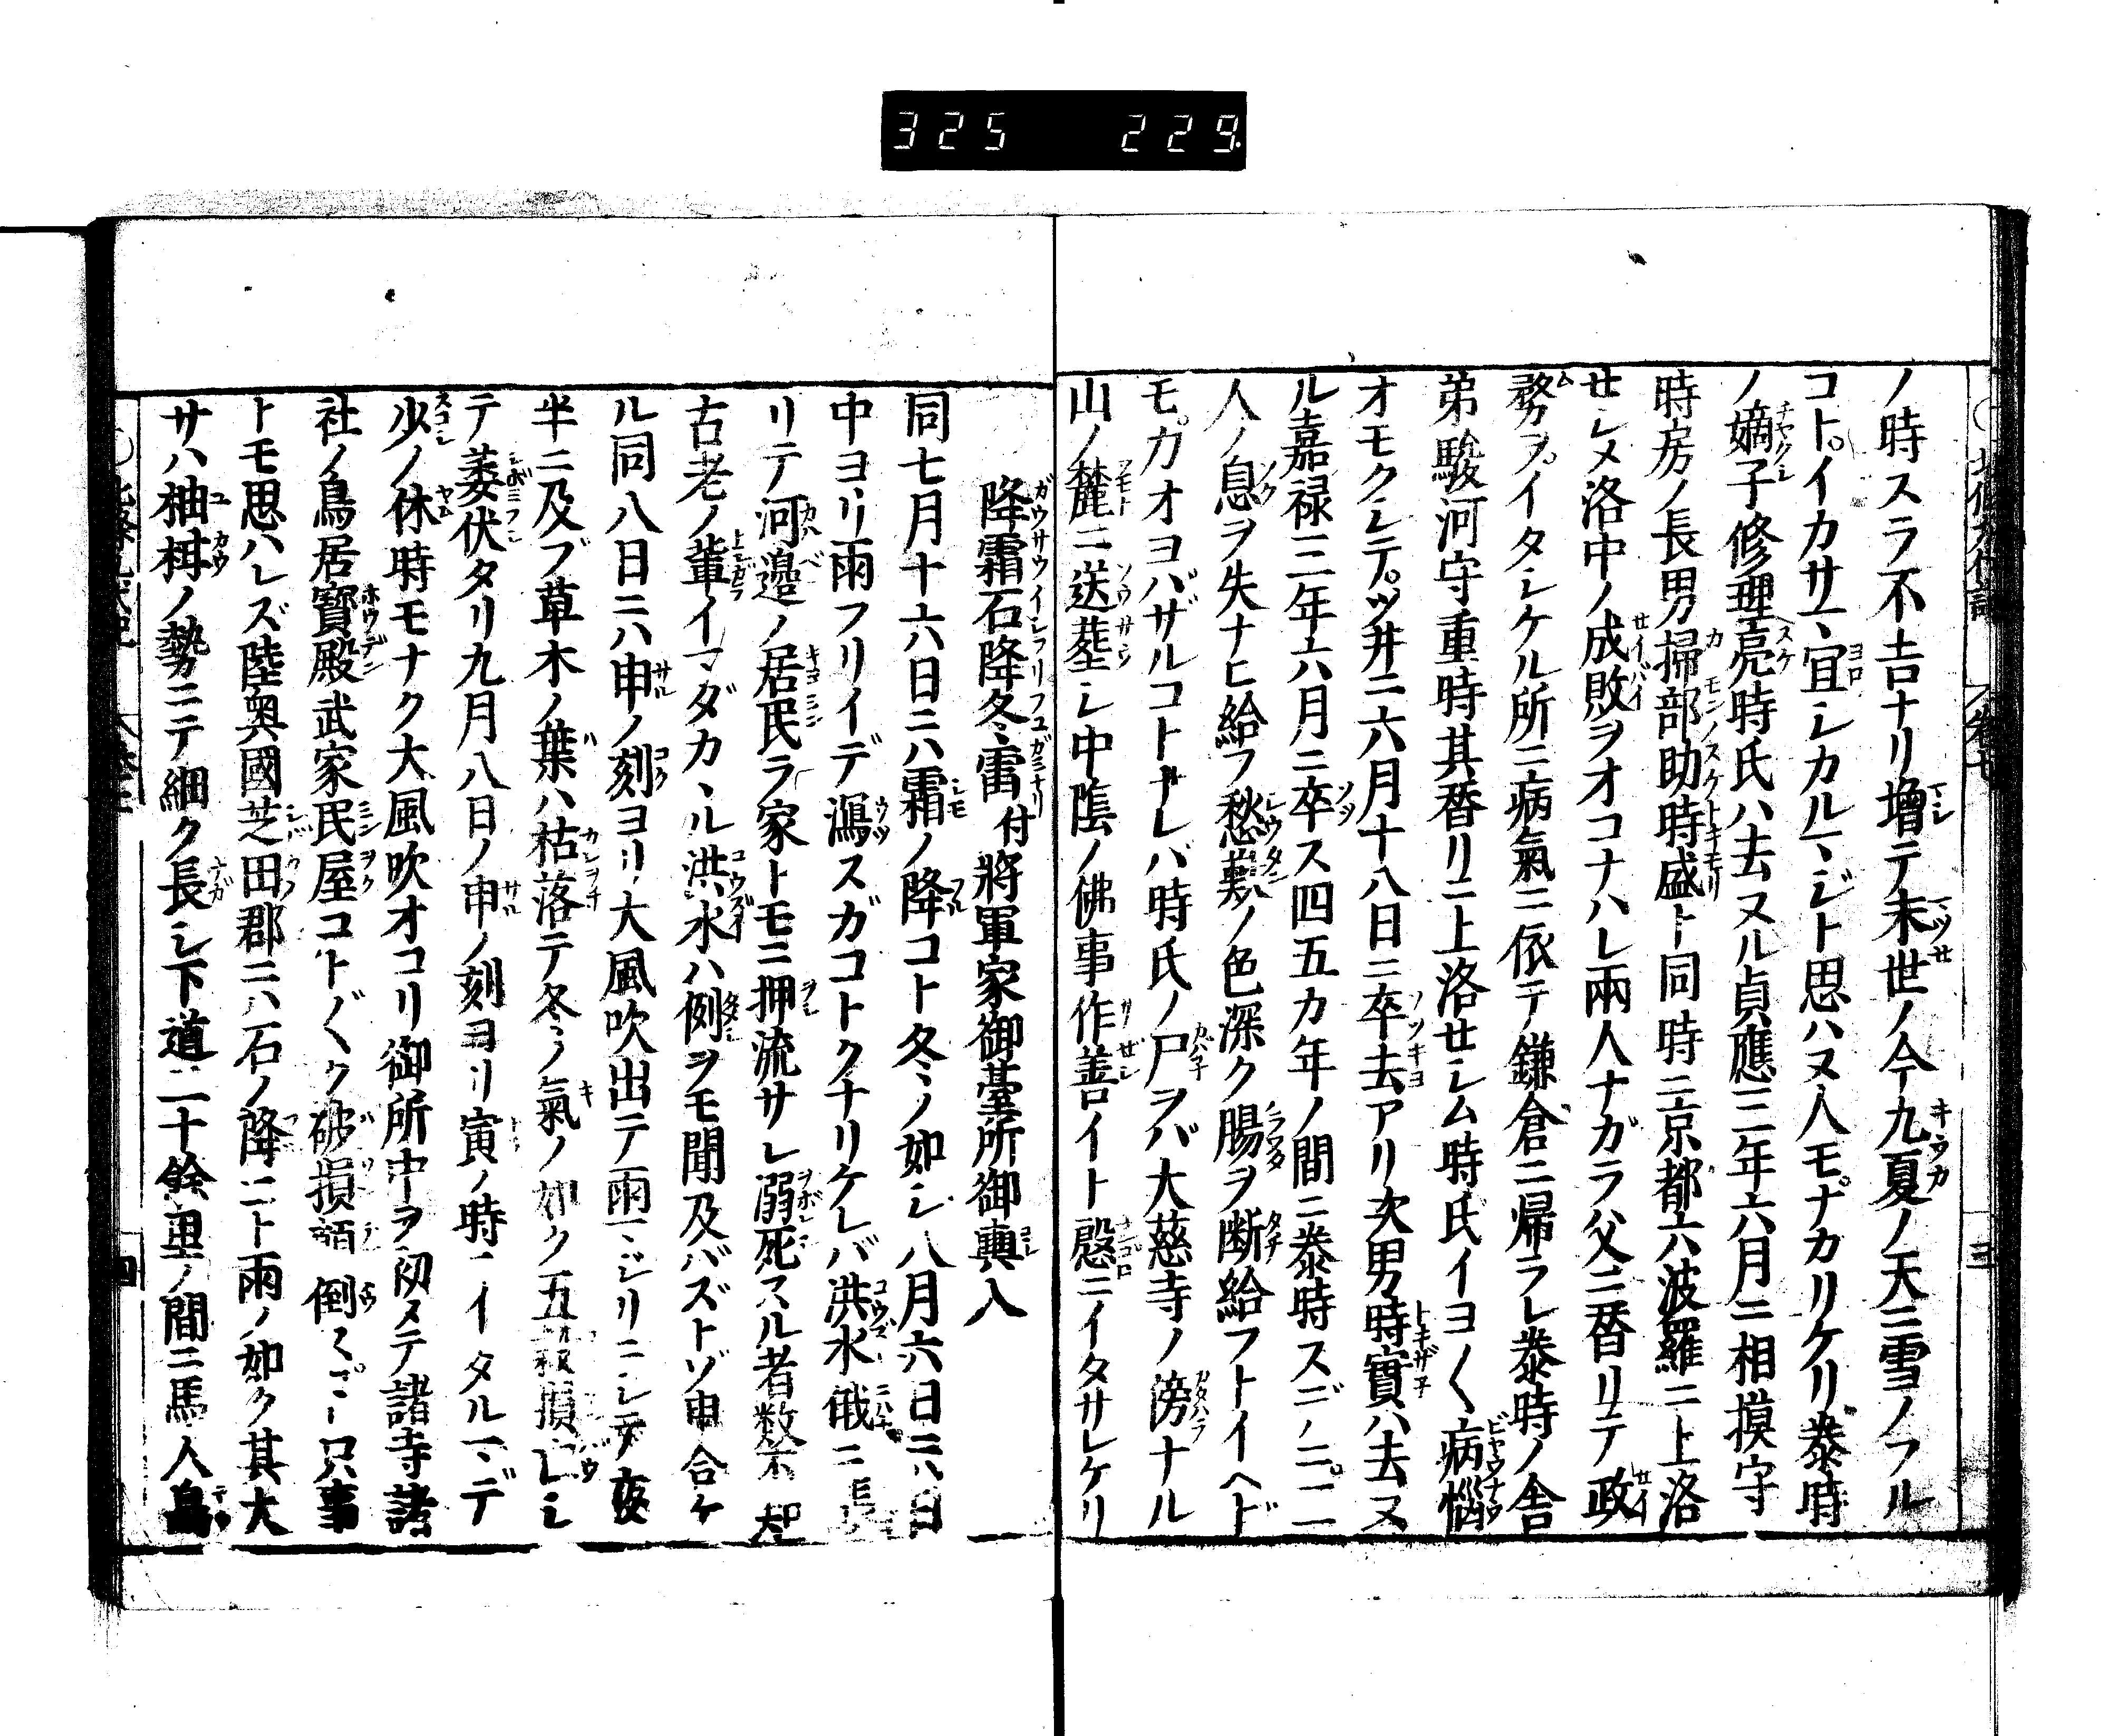 325 229.
ノ時スラ不吉ナリ増テ末世ノ今九夏ノ天ニ雪ノフル
コトイカサマ宜シカルマジト思ハヌ人モナカリケリ泰時
ノ嫡子修理亮時氏ハ去ヌル貞應三年六月ニ相摸守
時房ノ長男掃部助時盛ト同時ニ京都六波羅ニ上洛
セシメ洛中ノ成敗ヲオコナハレ兩人ナガラ父ニ替リテ政
務ヲイタシケル所ニ病氣ニ依テ鎌倉ニ帰ラレ泰時ノ舎
弟駿河守重時其替リニ上洛セシム時氏イヨ〱病惱
オモクシテツ井ニ六月十八日ニ卒去アリ次男時實ハ去ヌ
ル嘉禄三年六月ニ卒ス四五カ年ノ間ニ泰時スデニ二
人ノ息ヲ失ナヒ給フ愁歎ノ色深ク腸ヲ断給フトイヘド
モカオヨバザルコトナレバ時氏ノ尸ヲバ大慈寺ノ傍ナル
山ノ麓ニ送葬シ中陰ノ佛事作善イト慇ニイタサレケリ
降霜石降冬雷付將軍家御臺所御輿入
同七月十六日ニハ霜ノ降コト冬ノ如シ八月六日ニハ日
中ヨリ雨フリイデ瀉スガコトクナリケレバ洪水俄ニ漲
リテ河邊ノ居民ラ家トモニ押流サレ溺死スル者数不知
古老ノ輩イマダカヽル洪水ハ例ヲモ聞及バズトゾ申合ケ
ル同八日ニハ申ノ刻ヨリ大風吹出テ雨マジリニシテ夜
半ニ及ブ草木ノ葉ハ枯落テ冬ノ氣ノ如ク五穀損シ
テ萎伏タリ九月八日ノ申ノ刻ヨリ寅ノ時ニイタルマデ
少ノ休時モナク大風吹オコリ御所中ヲ初メテ諸寺諸
社ノ鳥居寶殿武家民屋コト〲ク破損顛倒ス只事
トモ思ハレズ陸奥國芝田郡ニハ石ノ降コト雨ノ如ク其大
サハ柚柑ノ勢ニテ細ク長シ下道二十餘里ノ間ニ馬人鳥